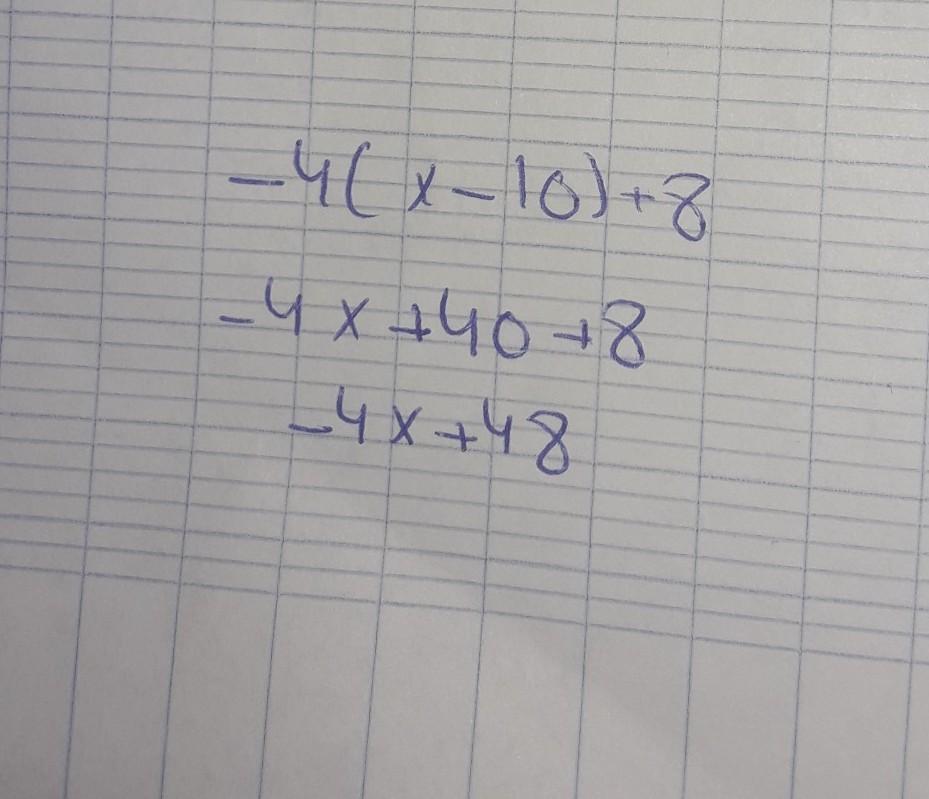 -4(x-10)+8
-4x+40+8
-4x+48